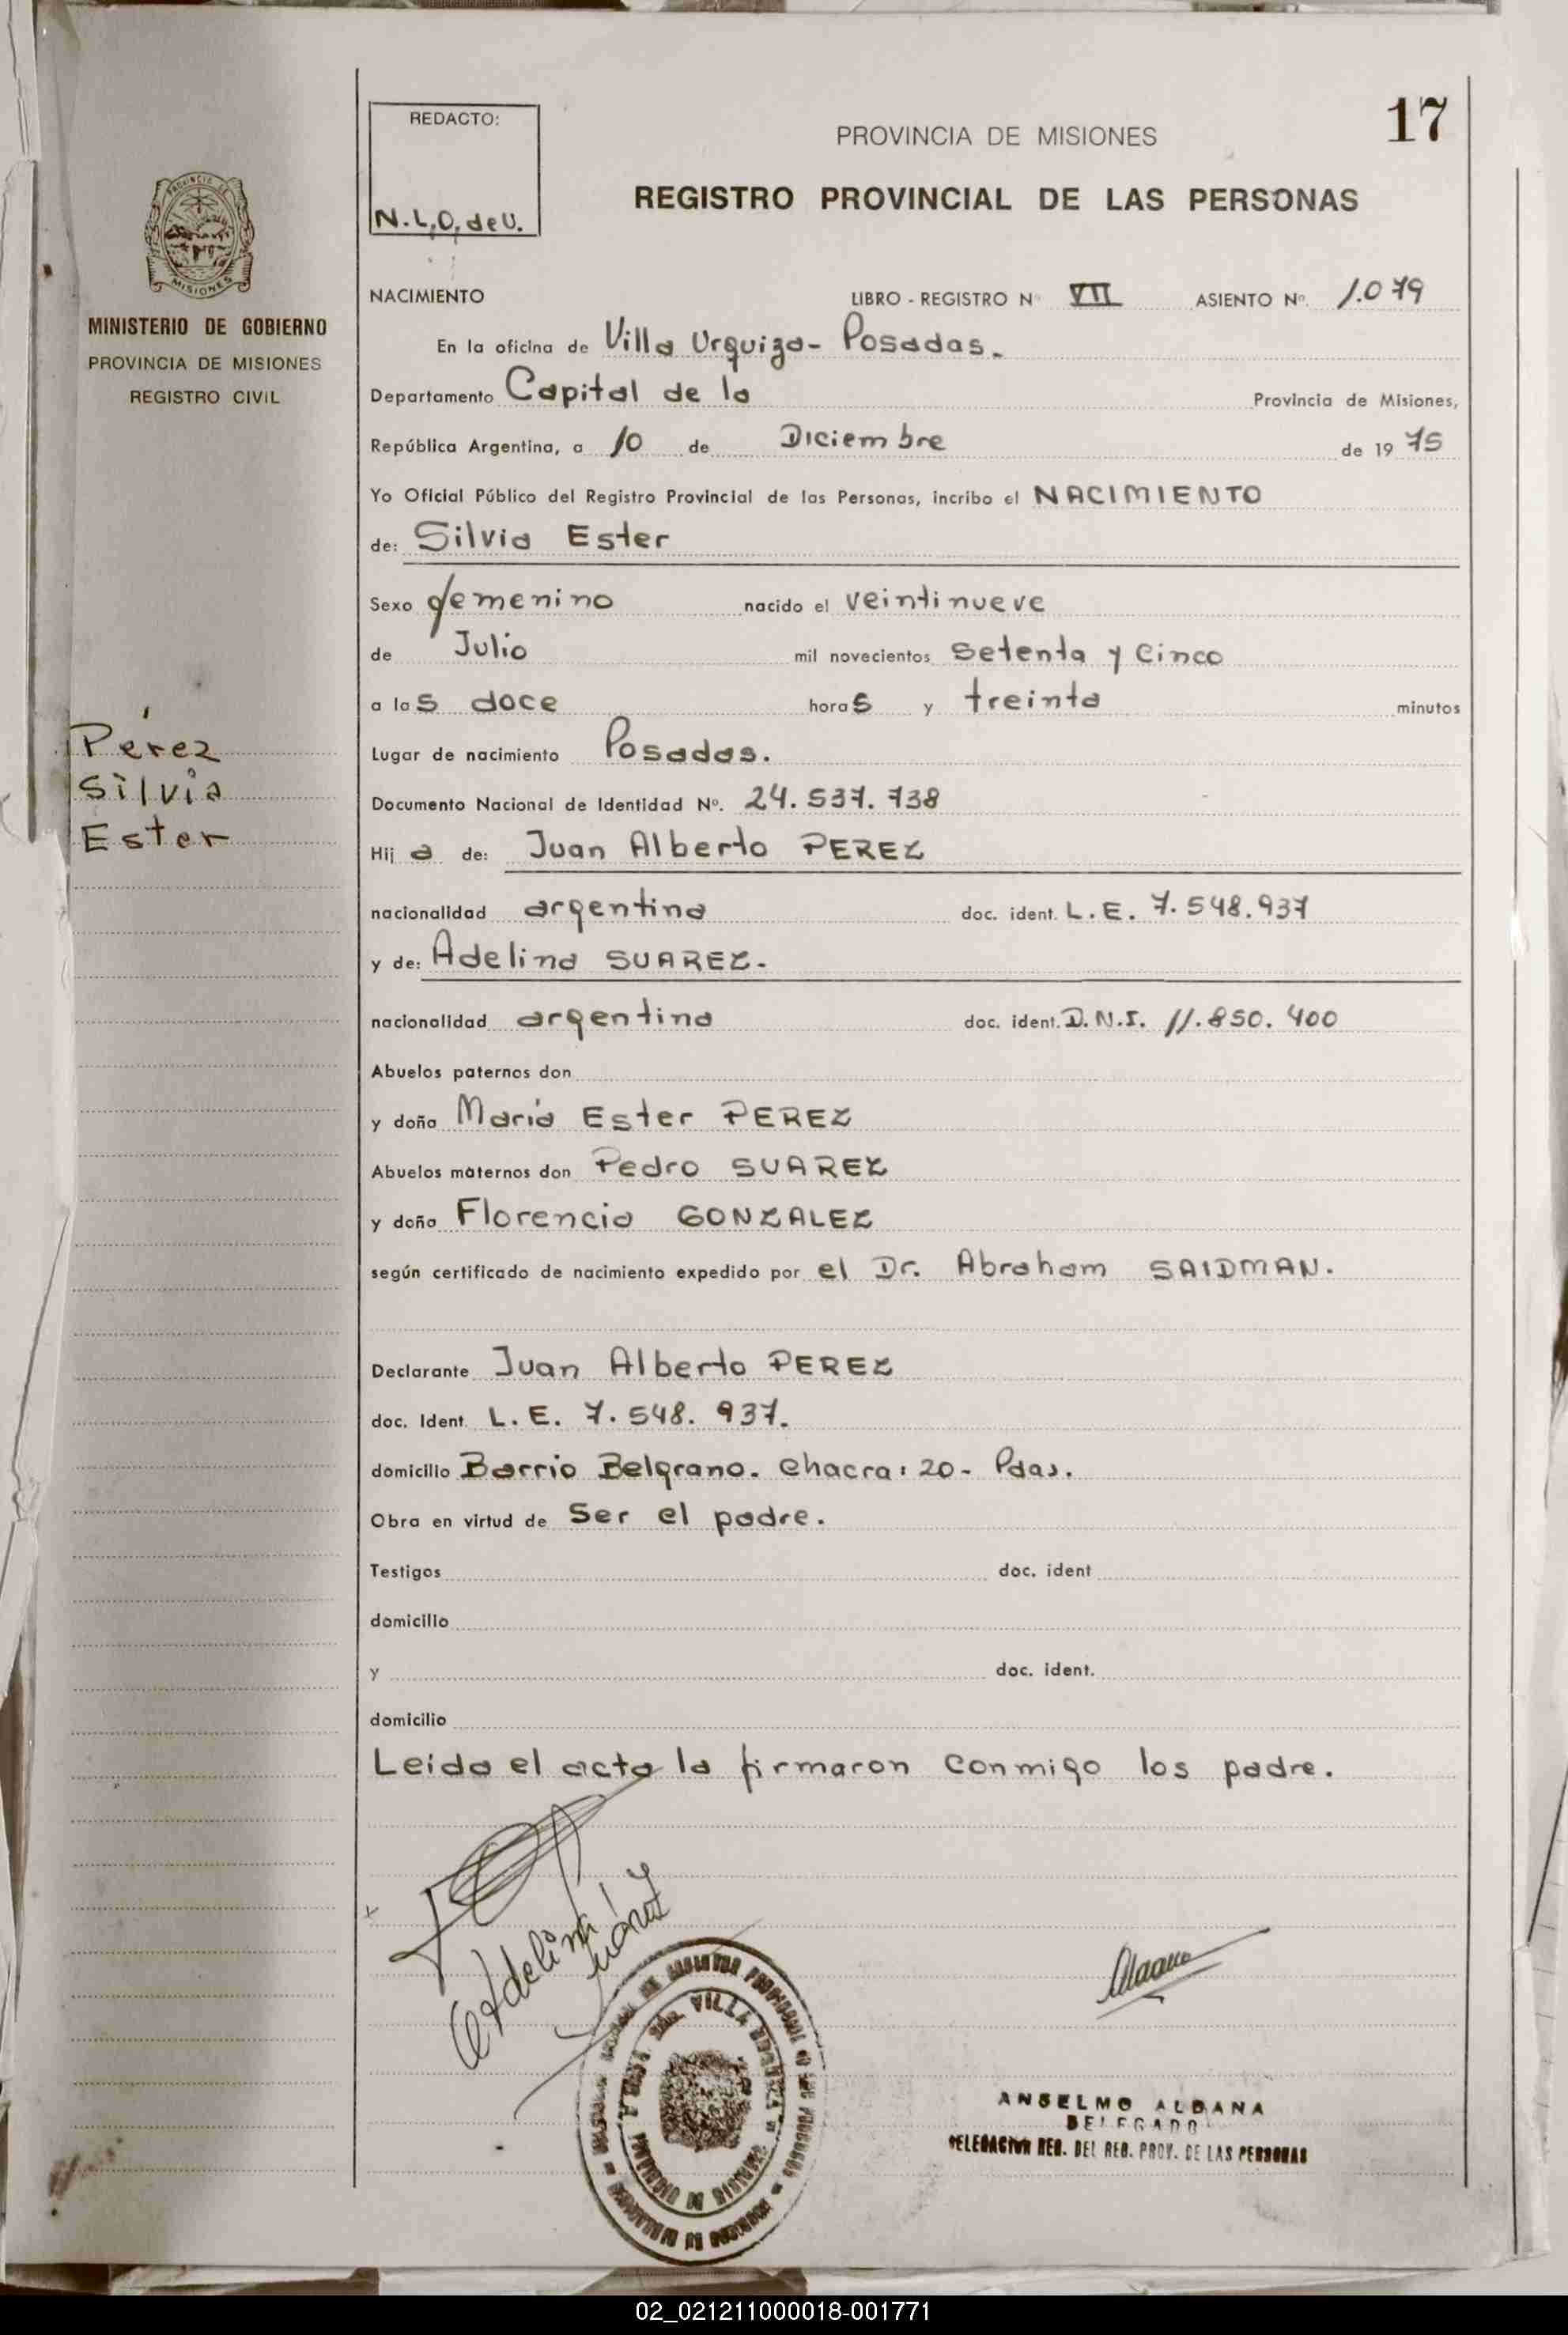 REDACTO:
N.L.O. de U.
17
PROVINCIA DE MISIONES
REGISTRO PROVINCIAL DE LAS PERSONAS
PROVINCIA DE
MISIONES
MINISTERIO DE GOBIERNO
PROVINCIA DE MISIONES
REGISTRO CIVIL
NACIMIENTO LIBRO - REGISTRO Nº VII ASIENTO Nº. 1.079
En la oficina de Villa Urquiza- Posadas.
Departamento Capital de la Provincia de Misiones,
República Argentina, a 10 de Diciembre de 1975
Yo Oficial Público del Registro Provincial de las Personas, incribo el NACIMIENTO
de: Silvia Ester
Sexo femenino nacido el veintinueve
de Julio mil novecientos setenta y cinco
a las doce horas y treinta minutos
Pérez
Silvia
Ester
Lugar de nacimiento Posadas.
Documento Nacional de Identidad Nº. 24.537.738
Hija de: Juan Alberto PEREZ
nacionalidad argentina doc. ident. L.E. 7.548.937
y de: Adelina SUAREZ.-
nacionalidad argentina doc. ident. D.N.I. 11.850.400
Abuelos paternos don
y doña María Ester PEREZ
Abuelos maternos don Pedro SUAREZ
y doña Florencia GONZALEZ
según certificado de nacimiento expedido por el Dr. Abraham SAIDMAN.
Declarante Juan Alberto PEREZ
doc. Ident. L.E. 7.548.937.
domicilio Barrio Belgrano. Chacra: 20- Pdas.
Obra en virtud de Ser el padre.
Testigos doc. ident
domicilio
y doc. ident.
domicilio
Leida el acta la firmaron conmigo los padre.
Adelina
Suárez
ANSELMO ALDANA
DELEGADO
DELEGACION REG. DEL REG. PROV. DE LAS PERSONAS
02_021211000018-001771